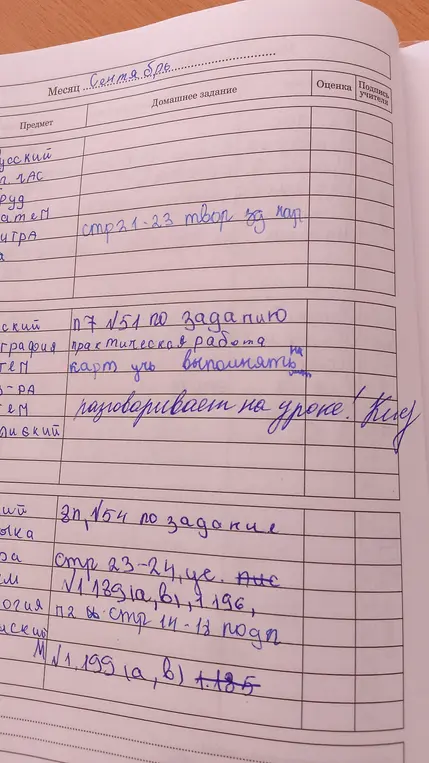 Месяц Сентябрь
Предмет Домашнее задание Оценка Подпись учителя
усский
ГАС
руд
атем стр 21-23 твор зд
ит-ра
а
ский п7 №51 по заданию
графия практическая работа
тем карт учь выполнять на
т-ра
тем разговаривает на уроке!
лийский
ий §п, №54 по задание
ыка
ра стр 23-24, ус. пис
ем №1 189(а, в), 1 196,
огия п2 стр 14-18 подп
йский
М №1.199(а, в) 1.185